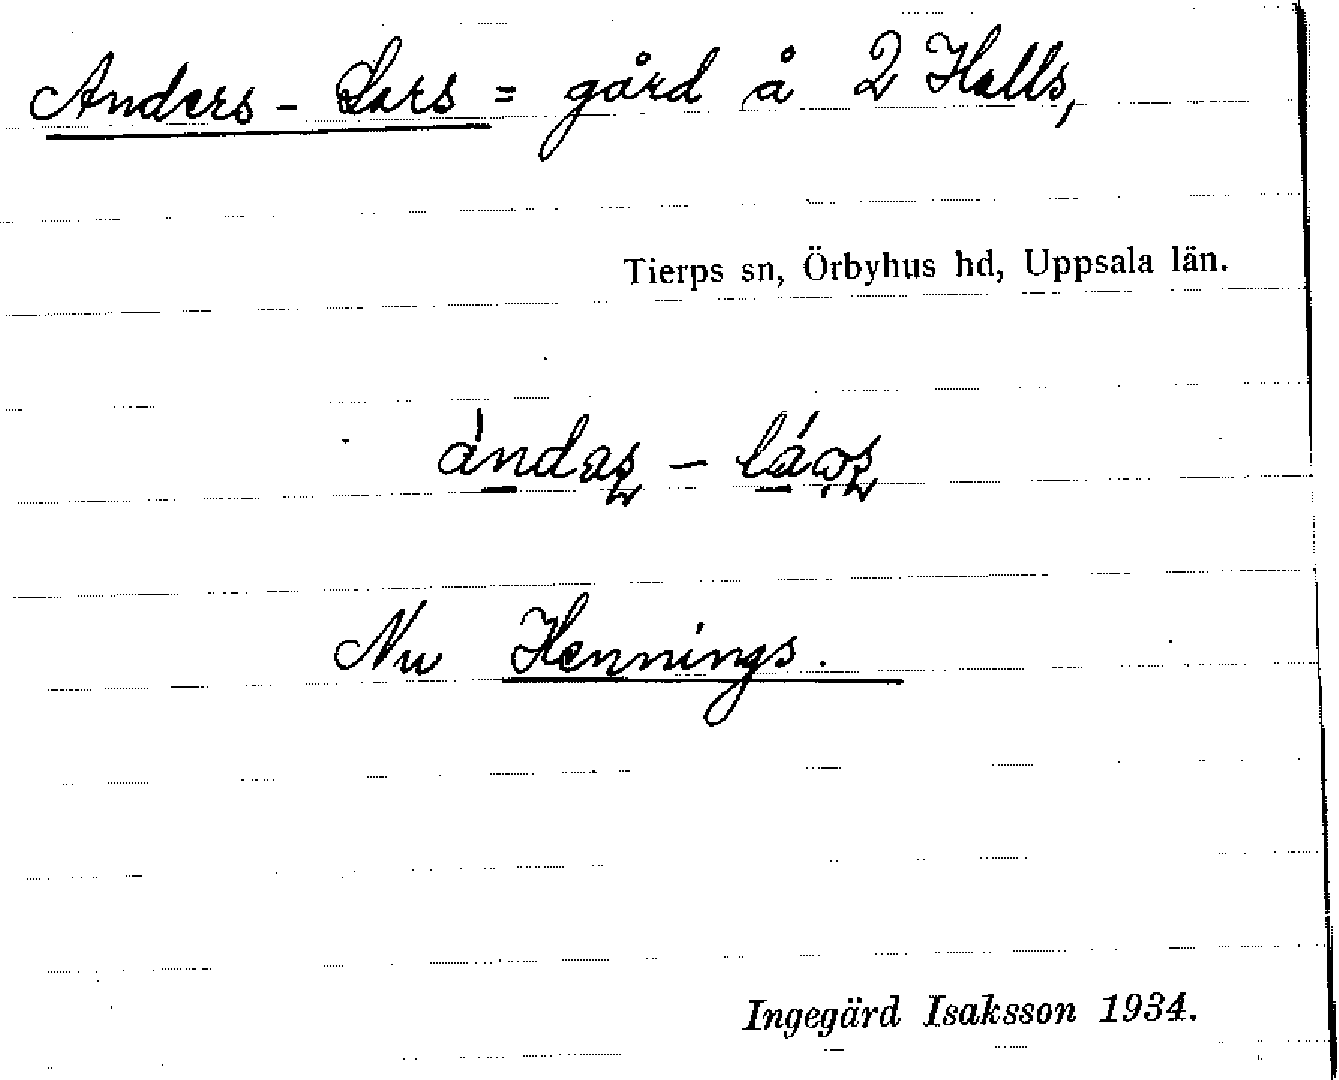 Anders - Lars = gård å 2 Halls,
Tierps sn, Örbyhus hd, Uppsala län.
Nu Hennings.
Ingegärd Isaksson 1934.